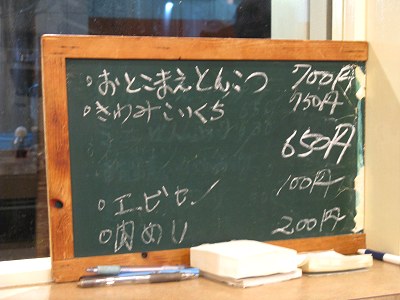 ・おとこまえとんこつ 700円
・きわみこいくち 750円
650円
・エビセン 100円
・肉めし 200円